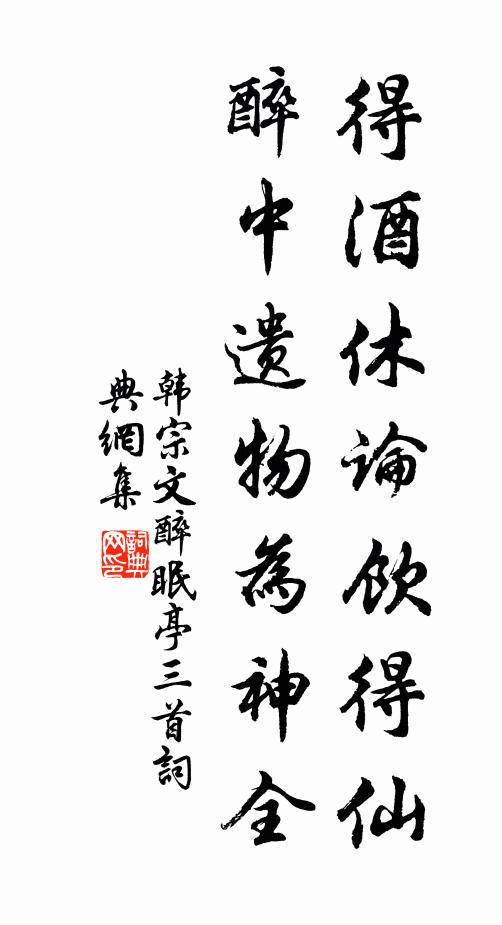 得酒休論飲得仙
醉中遺物為神全
韩宗文醉眠亭三首詞
典網集
詞典网印